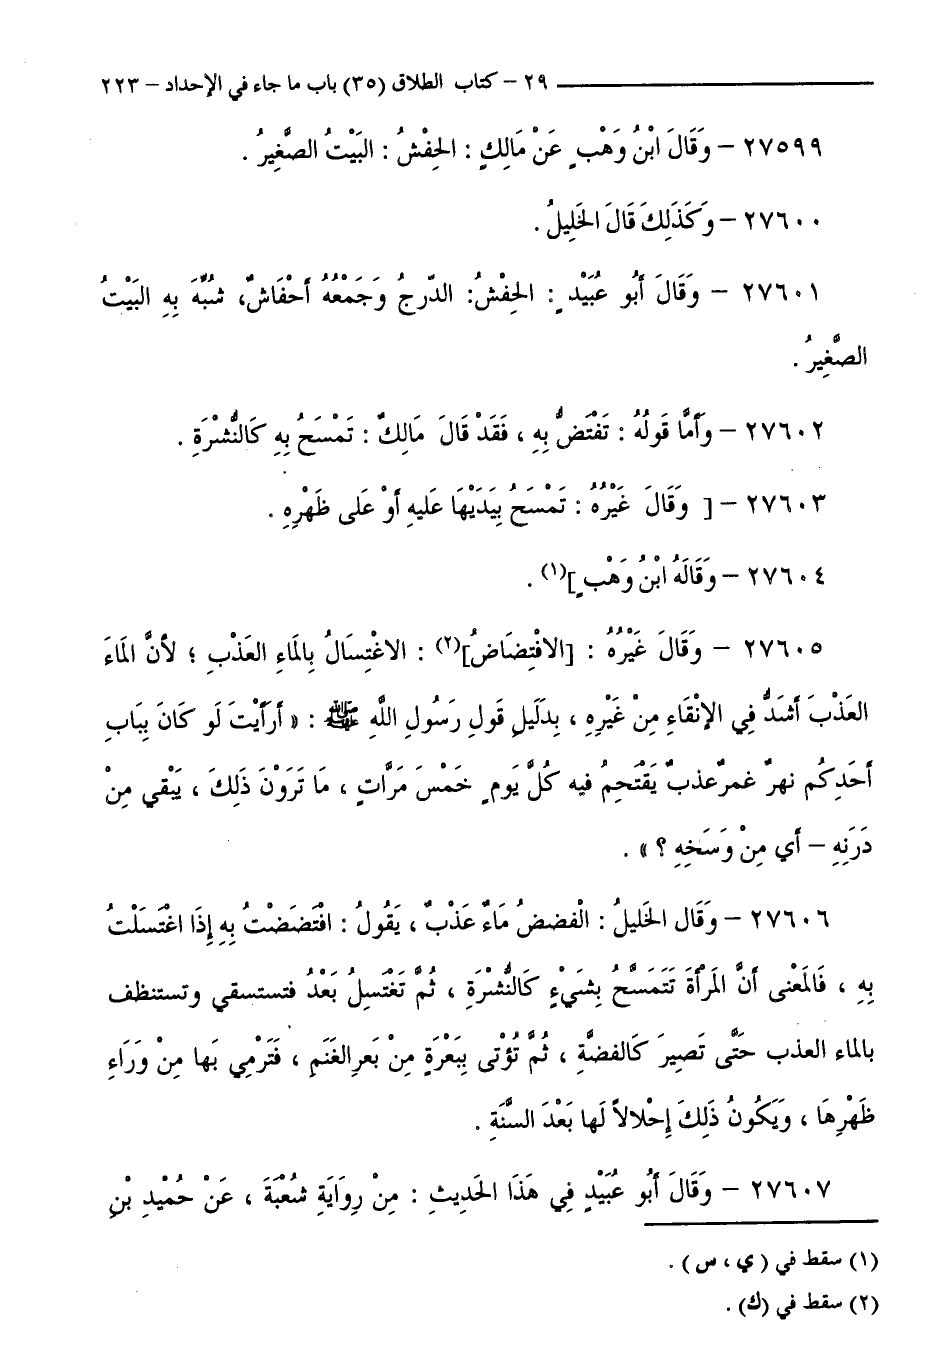 ٢٩ – كتاب الطلاق (٣٥) باب ما جاء في الإحداد – ٢٢٣
٢٧٥٩٩ – وَقَالَ ابْنُ وَهْبٍ عَنْ مَالِكٍ : الحِفْشُ : البَيْتُ الصَّغِيرُ .
٢٧٦٠٠ – وَكَذَلِكَ قَالَ الخَلِيلُ .
٢٧٦٠١ – وَقَالَ أَبُو عُبَيْدٍ : الحِفْشُ: الدّرجُ وَجَمْعُهُ أَحْفَاشٌ، شُبِّهَ بِهِ البَيْتُ
الصَّغِيرُ .
٢٧٦٠٢ – وَأَمَّا قَولُهُ : تَفْتَضُّ بِهِ ، فَقَدْ قَالَ مَالِكٌ : تَمْسَحُ بِهِ كَالنُّشْرَةِ .
٢٧٦٠٣ – [ وَقَالَ غَيْرُهُ : تَمْسَحُ بِيَدَيْهَا عَليهِ أَوْ عَلى ظَهْرِهِ .
٢٧٦٠٤ – وَقَالَهُ ابْنُ وَهْبٍ](١) .
٢٧٦٠٥ – وَقَالَ غَيْرُهُ : [الافْتِضَاضُ](٢) : الاغْتِسَالُ بِالمَاءِ العَذْبِ ؛ لأنَّ المَاءَ
العَذْبَ أَشَدُّ فِي الإنْقَاءِ مِنْ غَيْرِهِ ، بِدَلَيلِ قَولِ رَسُولِ اللَّهِ ﷺ : « أَرَأَيْتَ لَو كَانَ بِبَابِ
أَحَدِكُم نهرٌ غمرٌ عذبٌ يَقْتَحِمُ فيه كُلَّ يَومٍ خَمْسَ مَرَّاتٍ ، مَا تَرَوْنَ ذَلِكَ ، يَبْقي مِنْ
دَرَنِهِ – أي مِنْ وَسَخِهِ ؟ » .
٢٧٦٠٦ – وَقَال الخَلِيلُ : الْفضضُ مَاءٌ عَذْبٌ ، يَقُولُ : افْتَضَضْتُ بِهِ إِذَا اغْتَسَلْتُ
بِهِ ، فَالمَعْنى أَنَّ المَرْأَةَ تَتَمَسَّحُ بِشَيْءٍ كَالنُّشْرَةِ ، ثُمَّ تَغْتَسِلُ بَعْدُ فتستسقي وتستنظف
بالماء العذب حَتَّى تَصِيرَ كَالفضَّةِ ، ثُمَّ تُؤْتى بِبَعْرَةٍ مِنْ بَعرِ الغَنَمِ ، فَتَرْمِي بَها مِنْ وَرَاءِ
ظَهْرِهَا ، وَيَكُونُ ذَلِكَ إِحْلالاً لَها بَعْدَ السَّنَةِ .
٢٧٦٠٧ – وَقَالَ أَبُو عُبَيْدٍ فِي هَذَا الحَدِيثِ : مِنْ رِوَايَةِ شُعْبَةَ ، عَنْ حُمْيدِ بْنِ
(١) سقط في ( ي ، س ) .
(٢) سقط في (ك) .